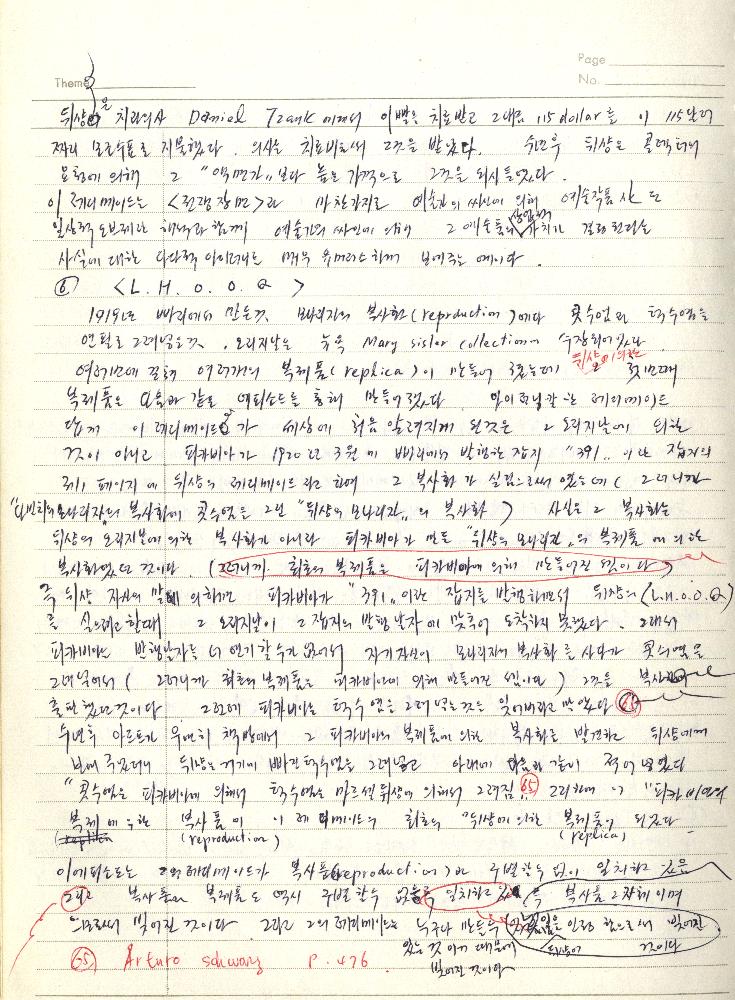 Page
Theme
No.
뒤샹은 치과의사 Daniel Tzank 에게서 이빨을 치료받고 그 대금 115 dollar를 이 115달러
짜리 모조수표로 지불했다. 의사는 치료비로써 그것을 받았다. 수년후 뒤샹은 콜렉터의
요청에 의해 그 "액면가" 보다 높은 가격으로 그것을 다시 들었다.
이 레디메이드는 <전쟁장면>과 마찬가지로 예술가의 싸인에 의해 예술작품
일상적 오브제라는 함께 예술가의 싸인에 의해 그 예술품의 상업적 가치가 결정된다는
사실에 대한 다다적 아이러니를 매우 유머러스하게 보여주는 예이다.
⑥ <L.H.O.O.Q>
1919년 빠리에서 만든것. 모나리자의 복사화(reproduction)에다 콧수염과 턱수염을
연필로 그려넣은것. 오리지날은 뉴욕 Mary sisler collection 수장되어있다
여러개의 복제품(replica)이 만들어 졌는데 뒤샹에 의한 첫번째
복제품은 다음과 같은 에피소드를 통해 만들어졌다. 레디메이드
답게 이 레디메이드가 세상에 처음 알려지게 된것은 그 오리지날에 의한
것이 아니고 피카비아가 1920년 3월에 빠리에서 발행한 잡지 "391" 이란 잡지의
제1 페이지에 뒤샹의 레디메이드라고 하여 그 복사화가 실림으로써 였는데 (그러니까
"다빈치의 모나리자"의 복사화에 콧수염을 그린 "뒤샹의 모나리자"의 복사화) 사실은 그 복사화는
뒤샹의 오리지날에 의한 복사화가 아니라 피카비아가 만든 "뒤샹의 모나리자"의 복제품에 의한
복사화였던 것이다. (그러니까 최초의 복제품은 피카비아에 의해 만들어진 것이다)
즉 뒤샹 자신의 말에 의하면 피카비아가 "391" 이란 잡지를 발행하면서 뒤샹의 (L.H.O.O.Q)
를 실으려고 할때 그 오리지날이 그 잡지의 발행 날짜에 맞추어 도착하지 못했다. 그래서
피카비아는 발행날자를 더 연기할수가 없어서 자기자신이 모나리자의 복사화를 사다가 콧수염을
그려넣어서 (그러니까 최초의 복제품은 피카비아에 의해 만들어진 셈이다) 그것을 복사하여
출판했던 것이다. 그런데 피카비아는 턱수염을 그려넣는것은 잊어버리고 말았다 65
수년후 아르프가 우연히 책방에서 그 피카비아의 복제품에 의한 복사화를 발견하고 뒤샹에게
보여 주었더니 뒤샹은 거기에 빠진 턱수염을 그려넣고 아래에 다음과 같이 적어 넣었다
"콧수염은 피카비아에 의해서 턱수염은 마르셀 뒤샹에 의해서 그려짐" 65 그리하여 이 "피카비아의
복제에 의한 복사품이 이 레디메이드의 최초의 "뒤샹에 의한 복제품이 되었다
(reproduction) (replica)
이 에피소드는 그의 레디메이드가 복사품(reproduction)과 구별할수 없이 일치하고 있음
그리고 복사품과 복제품도 역시 구별할수 없도록 일치하고 있음 즉 복사품 그 자체이며
으로써 빚어진 것이다 그리고 그의 레디메이드는 누구나 만들수 있는 것이기 때문에 빚어진것이다
뒤샹이 인정함으로써 빚어진 것이다
65 Arturo schwarz P. 476